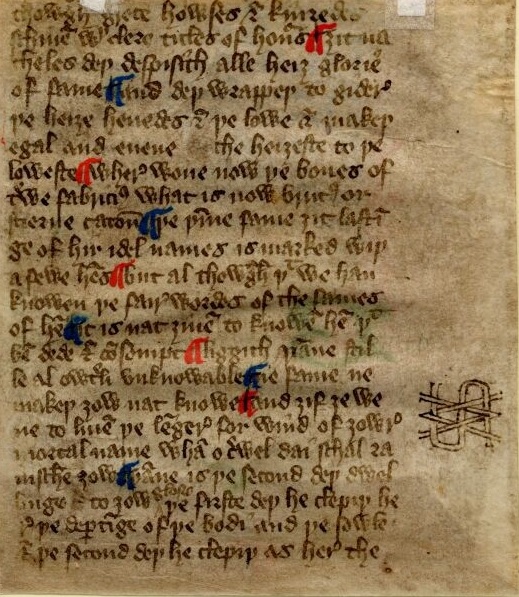 thowgh grete howses & kynredes
schinē wt clere titles of honōs ȝit na
theles deþ despisith alle heiȝ glorie
of fame and deþ wrappeþ to gider
þe heiȝe heuedes & þe lowe & makeþ
egal and euene the heiȝeste to þe
loweste wher wone now þe bones of
trwe fabrici9 what is now brut9 or
sterne catoun þe þinne fame ȝit lasti
ge of hir idel names is marked wiþ
a fewe lr̄es but al thowgh þt we han
knowen þe fair wordes of the fames
of hē it is nat ȝiuē to knowē hē þt
bē dede & cōsempt liggith þāne stil
le al owtrli vnknowable ne fame ne
makeþ ȝow nat knowe and ȝif ȝe we
ne to liuē þe lēger for wind of ȝowr
mortal name whā o crwel dai schal ra
uische ȝow þāne is þe second deþ dwel
linge to ȝow glose þe firste deþ he clepiþ he
r þe deptīge of þe bodi and þe sowle
& þe second deþ he clepiþ as her the